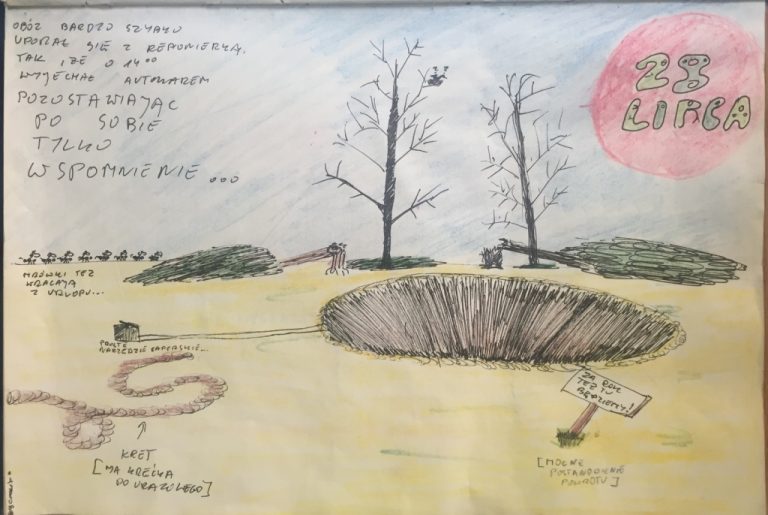 OBÓZ BARDZO SZYBKO
UPORAŁ SIĘ Z REPONIERKĄ.
TAK, ŻE O 14⁰⁰
WYJECHAŁ AUTOKAREM
POZOSTAWIAJĄC
PO SOBIE
TYLKO
WSPOMNIENIE...
28
LIPCA
MRÓWKI TEŻ
WRACAJĄ
Z URLOPU...
PROSTE
NARZĘDZIE SAPERSKIE...
ZA ROK
TEŻ TU
BĘDZIEMY!
KRET
[MA KRĘĆKA
DO URAZOWEGO]
[MOCNE
POSTANOWIENIE
POWROTU]